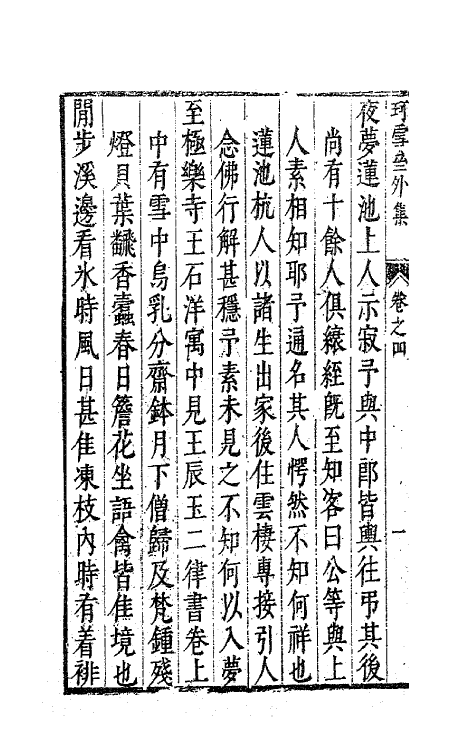 珂雪齋外集 卷之四 一
夜夢蓮池上人示寂予與中郎皆輿往弔其後
尚有十餘人俱縗絰既至知客曰公等與上
人素相知耶予遍名其人愕然不知何祥也
蓮池杭人以諸生出家後住雲棲專接引人
念佛行解甚穩予素未見之不知何以入夢
至極樂寺王石洋寓中見王辰玉二律書卷上
中有雪中烏乳分齋鉢月下僧歸及梵鍾殘
燈貝葉飜香蠹春日簷花坐語禽皆佳境也
閒步溪邊看氷時風日甚佳凍枝內時有着緋